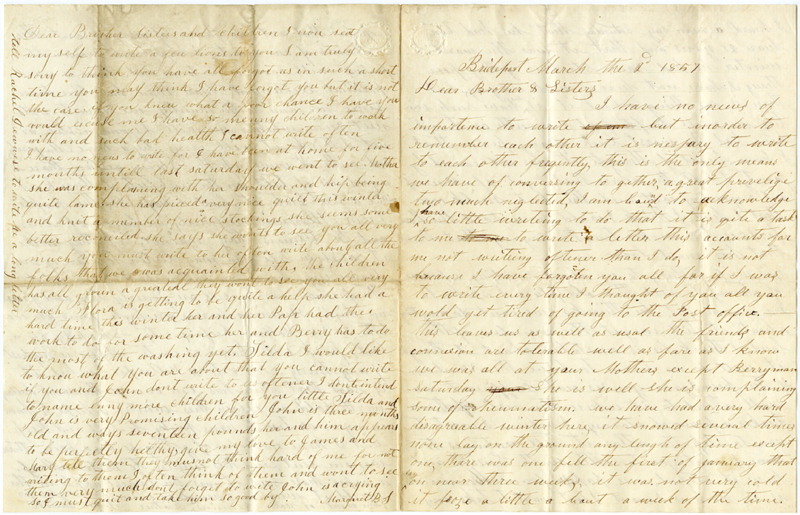 Dear Brother Sister and children I now seat
my self to write a few lines to you I am truly
sorry to think you have all forgot us in such a short
time you may think I have forgot you but it is not
the case if you knew what a poor chance I have you
would excuse me I have so many children to work
with and such bad health I cannot write often
I have no news to write for I have been at home for five
months untill last saturday we went to see Mother
she was complaining with her shoulder and hip being
quite lame she has pieced a very nice quilt this winter
and knit a number of nice stockings she seems some
better reconciled she says she wants to see you all very
much you must write to her often write about all the
folks that we was acquainted with the children
has all grown a great deal they want to see you all very
much Flora is getting to be quite a help she had a
hard time this winter her and her Pap had the
work to do for some time her and Berry has to do
the most of the washing yet. Tilda I would like
to know what you are about that you cannot write
if you and John dont write to us oftener I dont intend
to name any more children for you little Tilda and
John is very Promising children John is three months
old and ways seventeen pounds her and him appears
to be perfectly helthy give my love to James and
Mary tell them they must not think hard of me for not
writing to them I often think of them and want to see
them very much dont forget to write John is acrying
so I must quit and take him so good by Margret B S
tell Rachel to write us a long letter
Bridgport March the 1 1857
Dear Brother & Sister
I have no news of
importence to write but inorder to
remember each other it is nespary to write
to each other freqently this is the only means
we have of conversing to gether, a great privelige
two much neglected, I am to acknowledge
I have so little writing to do that it is qite a task
to me to write a letter this accounts for
me not writing oftener than I do, it is not
because I have forgoten you all far if I was
to write every time I thought of you all you
would get tired of going to the Post office.
this leaves us as well as usal the friends and
connexion are tolerable well as fare as I know
we was all at your Mothers except Berryman
saturday she is well she is complaining
some of rheumatism we have had a very hard
disagreable winter here it snowed several times
none lay on the ground any lengh of time except
one, there was one fell the first of january that
on near three weeks, it was not very cold
it froze a little a bout a week of the time.